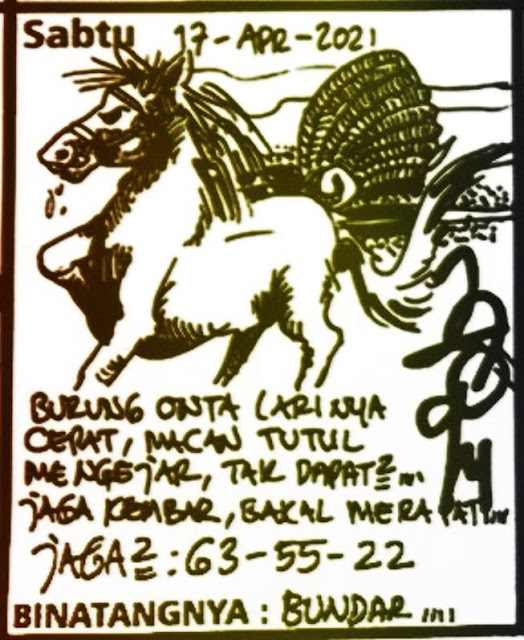 Sabtu 17-APR-2021
BURUNG ONTA LARINYA
CEPAT, MACAN TUTUL
MENGEJAR, TAK DAPAT2...
JAGA KEMBAR, BAKAL MERAPAT...
JAGA2 : 63-55-22
BINATANGNYA : BUNDAR...